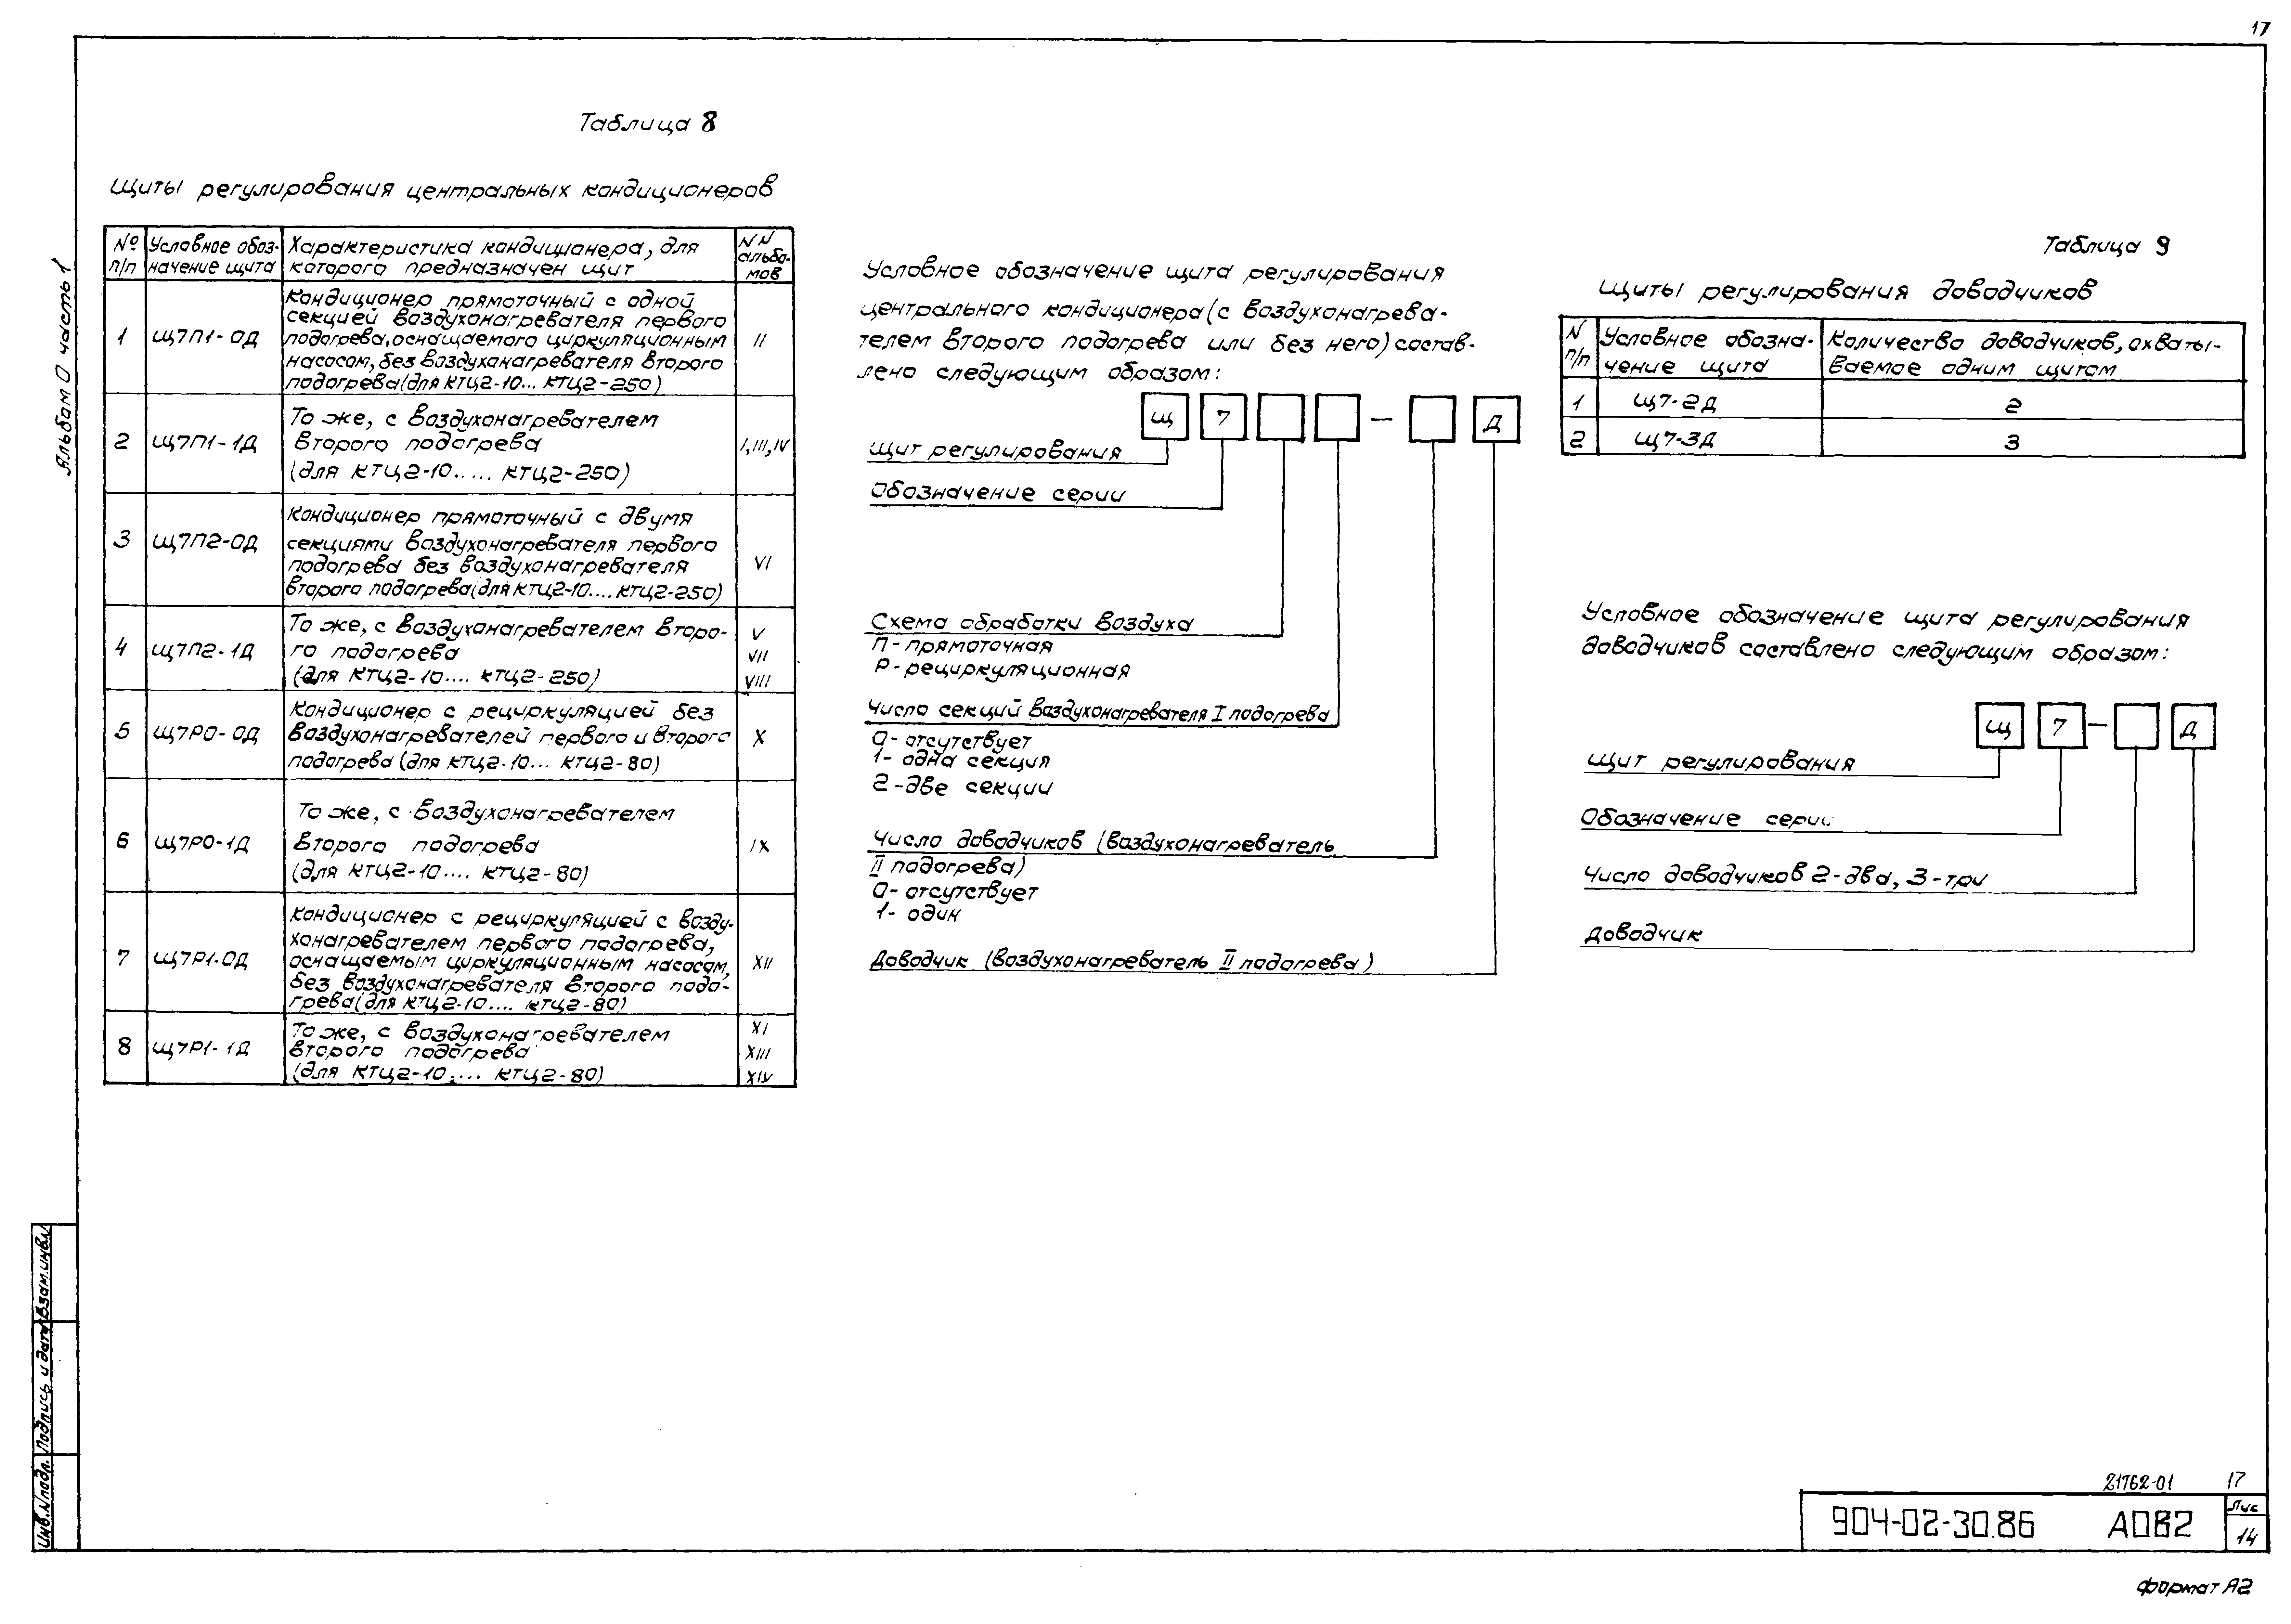 17
Альбом 0 часть 1
Таблица 8
Щиты регулирования центральных кондиционеров
№ п/п
Условное обоз-
начение щита
Характеристика кондиционера, для
которого предназначен щит
NN
альбо-
мов
1
Щ7П1-0Д
Кондиционер прямоточный с одной
секцией воздухонагревателя первого
подогрева, оснащаемого циркуляционным
насосом, без воздухонагревателя второго
подогрева (для КТЦ2-10... КТЦ2-250)
II
2
Щ7П1-1Д
То же, с воздухонагревателем
второго подогрева
(для КТЦ2-10..... КТЦ2-250)
I, III, IV
3
Щ7П2-0Д
Кондиционер прямоточный с двумя
секциями воздухонагревателя первого
подогрева без воздухонагревателя
второго подогрева (для КТЦ2-10.... КТЦ2-250)
VI
4
Щ7П2-1Д
То же, с воздухонагревателем второ-
го подогрева
(для КТЦ2-10.... КТЦ2-250)
V
VII
VIII
5
Щ7Р0-0Д
Кондиционер с рециркуляцией без
воздухонагревателей первого и второго
подогрева (для КТЦ2-10... КТЦ2-80)
X
6
Щ7Р0-1Д
То же, с воздухонагревателем
второго подогрева
(для КТЦ2-10.... КТЦ2-80)
IX
7
Щ7Р1-0Д
Кондиционер с рециркуляцией с возду-
хонагревателем первого подогрева,
оснащаемым циркуляционным насосом,
без воздухонагревателя второго подо-
грева (для КТЦ2-10.... КТЦ2-80)
XII
8
Щ7Р1-1Д
То же, с воздухонагревателем
второго подогрева
(для КТЦ2-10.... КТЦ2-80)
XI
XIII
XIV
Условное обозначение щита регулирования
центрального кондиционера (с воздухонагрева-
телем второго подогрева или без него) состав-
лено следующим образом:
Щ 7 – Д
Щит регулирования
Обозначение серии
Схема обработки воздуха
П- прямоточная
Р- рециркуляционная
Число секций воздухонагревателя I подогрева
0- отсутствует
1- одна секция
2 -две секции
Число доводчиков (воздухонагреватель
II подогрева)
0- отсутствует
1- один
Доводчик (воздухонагреватель II подогрева)
Таблица 9
Щиты регулирования доводчиков
N п/п
Условное обозна-
чение щита
Количество доводчиков, охваты-
ваемое одним щитом
1
Щ7-2Д
2
2
Щ7-3Д
3
Условное обозначение щита регулирования
доводчиков составлено следующим образом:
Щ 7 – Д
Щит регулирования
Обозначение серии
Число доводчиков 2-два, 3-три
Доводчик
Инв. N подл.
Подпись и дата
Взам. инв.N
21762-01
17
904-02-30.86 АОВ2
Лис
14
Формат А2